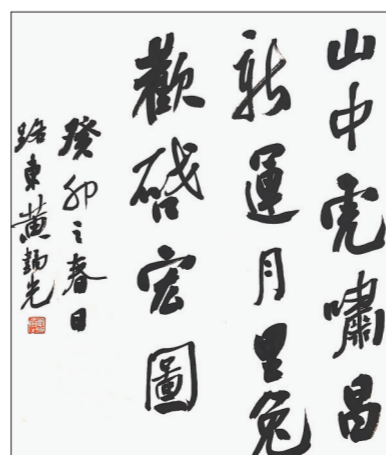 山中虎啸昌
新運月里兔
歡啓宏圖
癸卯之春日
路東黄錫光